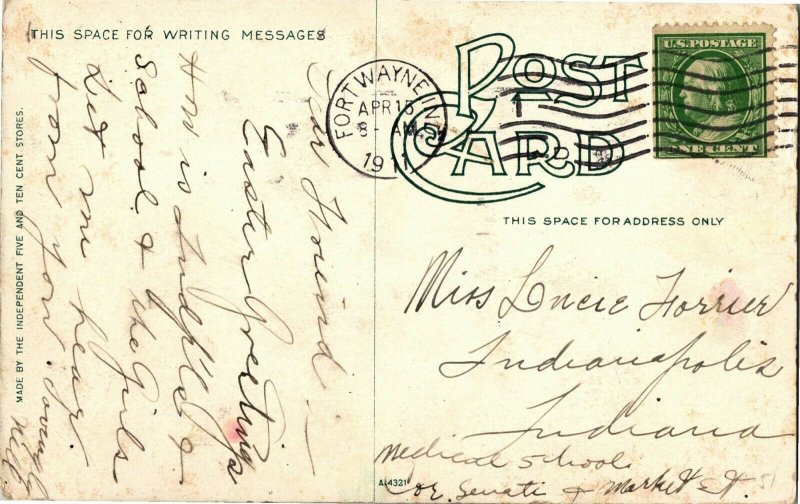 THIS SPACE FOR WRITING MESSAGES
Dear Friend —
Easter Greetings
How is Ind'pl's &
School & the girls
Let me hear
from you. Lovingly
Nell.
MADE BY THE INDEPENDENT FIVE AND TEN CENT STORES.
FORT WAYNE, IND.
APR 15
8- AM
1911
1
POST CARD
U.S. POSTAGE
ONE CENT
THIS SPACE FOR ADDRESS ONLY
Miss Lucie Forrier
Indianapolis
Indiana
Medical School
Cor. Senati & Market St.
A-4321
51